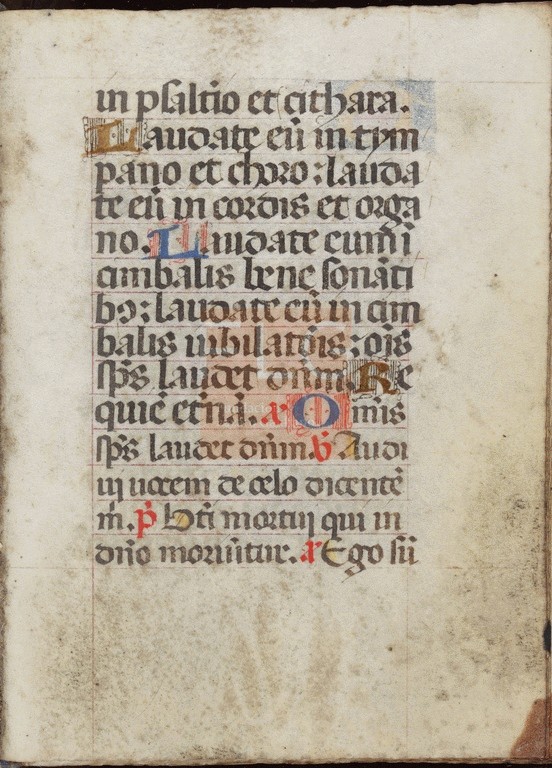 in psaltio et cithara.
Laudate eū in tym
pano et choro : lauda
te eū in cordis et orga
no. Laudate eum ī
cimbalis bene sonāti
bꝰ : laudate eū in cim
balis iubilatōis : oīs
sp̄s laudet dn̄m. Re
quiē et̄nā. a Omīs
sp̄s laudet dn̄m. v Audi
ui uocem de celo dicentē
m̄. p Bt̄i mortui qui in
dn̄o moriūtur. a Ego sū